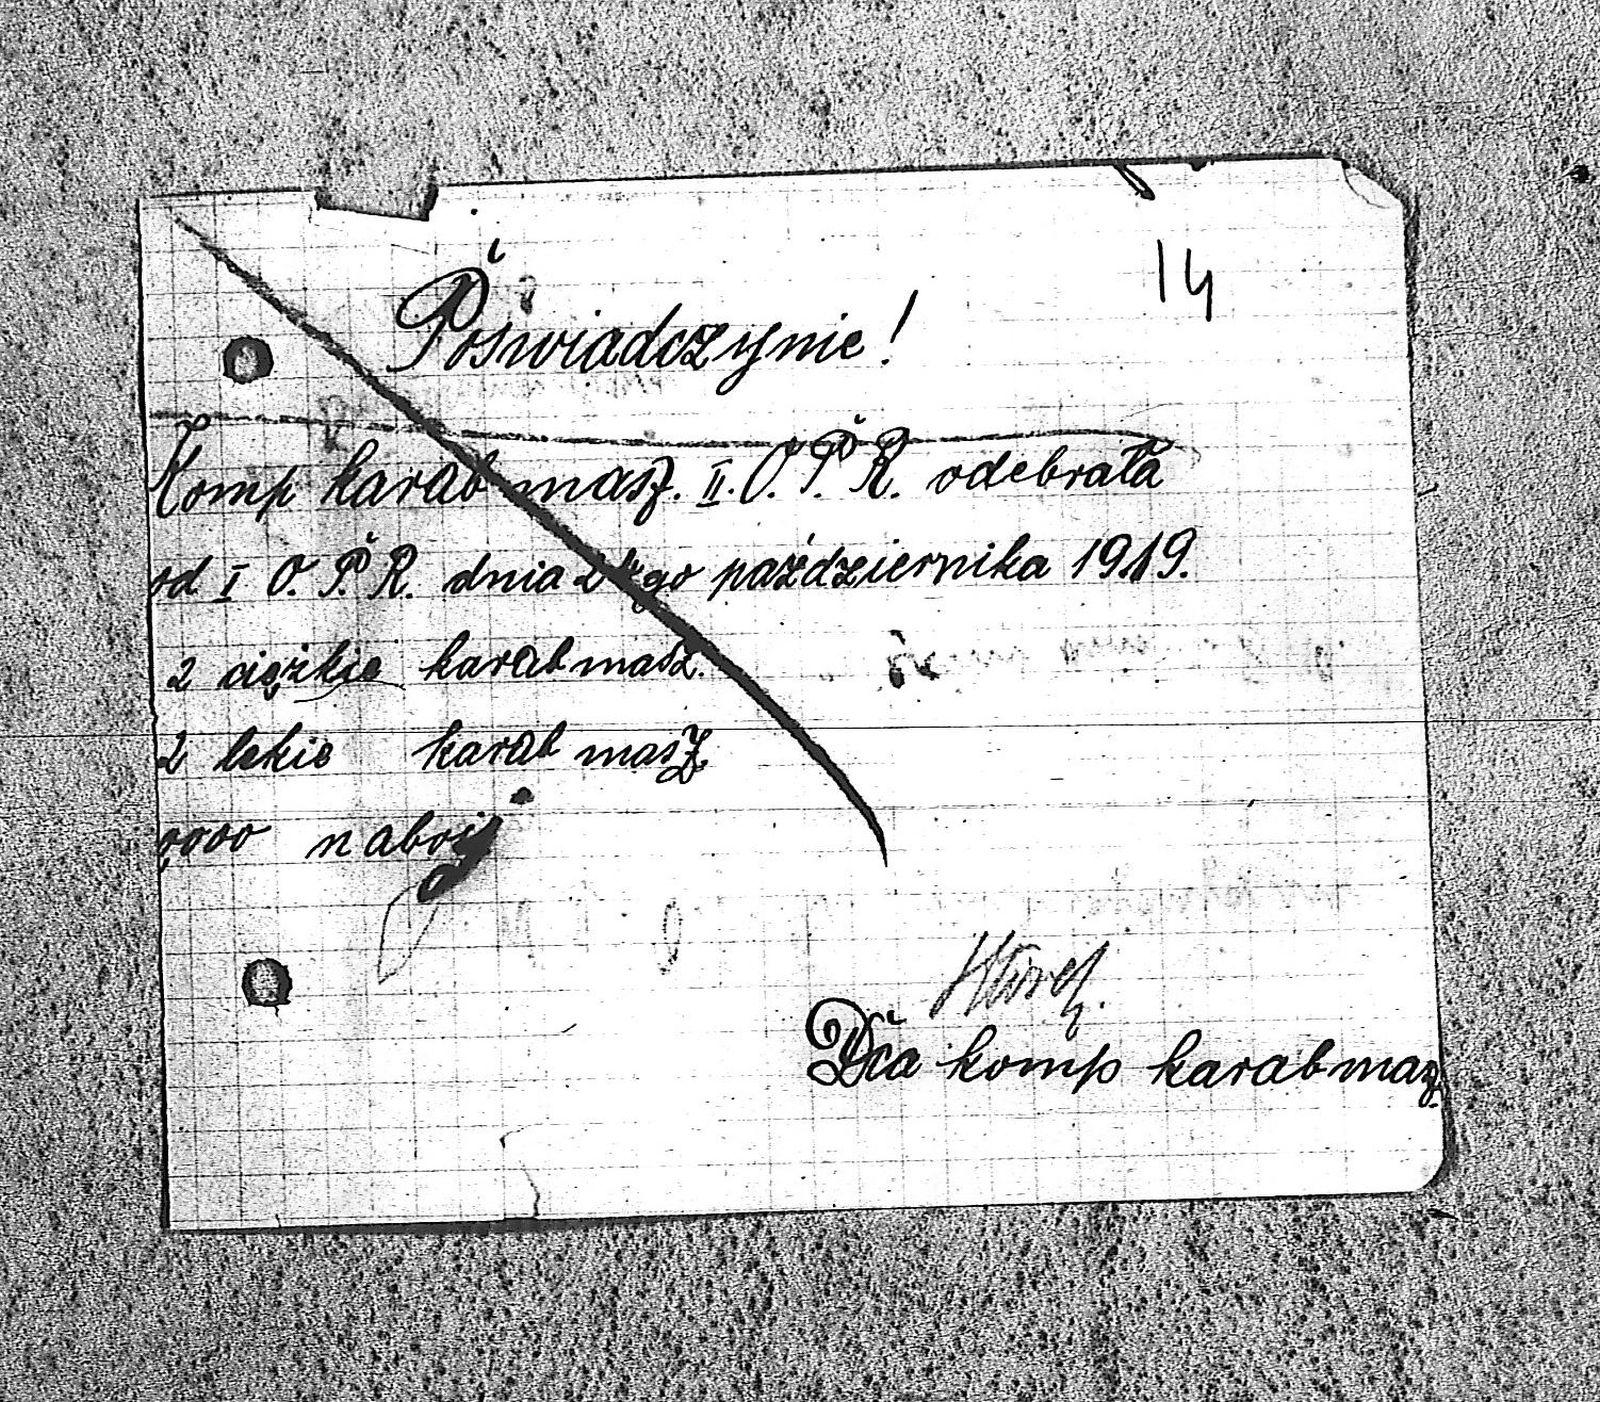 14
Poświadczynie!
Komp karab masz. II. O. P. R. odebrała
od I O. P. R. dnia października 1919.
2 ciężkie karab masz.
2 lekie karab masz.
naboji
Dca komp karab masz.